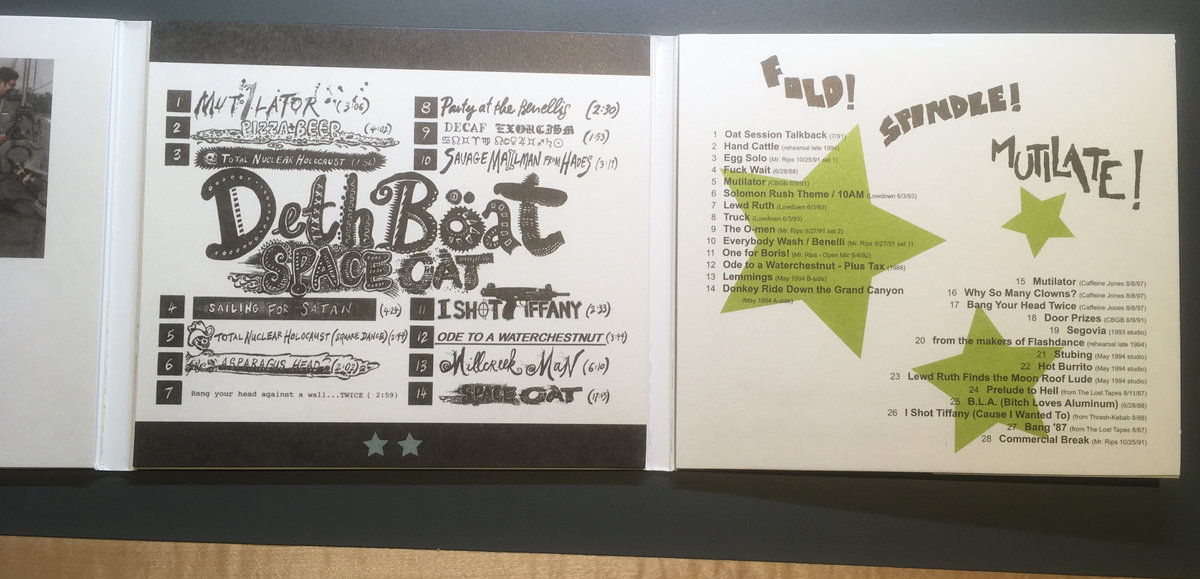 1 MUTILATOR (3:06)
2 PIZZA+BEER (4:02)
3 TOTAL NUCLEAR HOLOCAUST (1:56)
8 Party at the Benelli's (2:30)
9 DECAF EXORCISM (1:53)
10 SAVAGE MAILMAN FROM HADES (3:17)
Deth Böat
SPACE CAT
4 SAILING FOR SATAN (4:24)
5 TOTAL NUCLEAR HOLOCAUST (SQUARE DANCE) (2:44)
6 ASPARAGUS HEAD (2:02)
7 Bang your head against a wall...TWICE ( 2:59)
11 I SHOT TIFFANY (2:33)
12 ODE TO A WATERCHESTNUT (3:44)
13 Millcreek MaN (6:10)
14 SPACE CAT (17:45)
FOLD!
SPINDLE!
MUTILATE!
1 Oat Session Talkback (7/91)
2 Hand Cattle (rehearsal late 1994)
3 Egg Solo (Mr. Rips 10/25/91 set 1)
4 Fuck Wait (6/28/88)
5 Mutilator (CBGB 6/9/91)
6 Solomon Rush Theme / 10AM (Lowdown 6/3/93)
7 Lewd Ruth (Lowdown 6/3/93)
8 Truck (Lowdown 6/3/93)
9 The O-men (Mr. Rips 9/27/91 set 2)
10 Everybody Wash / Benelli (Mr. Rips 9/27/91 set 1)
11 One for Boris! (Mr. Rips - Open Mic 5/4/92)
12 Ode to a Waterchestnut - Plus Tax (1988)
13 Lemmings (May 1994 B-side)
14 Donkey Ride Down the Grand Canyon
(May 1994 A-side)
15 Mutilator (Caffeine Jones 8/8/97)
16 Why So Many Clowns? (Caffeine Jones 8/8/97)
17 Bang Your Head Twice (Caffeine Jones 8/8/97)
18 Door Prizes (CBGB 6/9/91)
19 Segovia (1993 studio)
20 from the makers of Flashdance (rehearsal late 1994)
21 Stubing (May 1994 studio)
22 Hot Burrito (May 1994 studio)
23 Lewd Ruth Finds the Moon Roof Lude (May 1994 studio)
24 Prelude to Hell (from The Lost Tapes 8/11/87)
25 B.L.A. (Bitch Loves Aluminum) (6/28/88)
26 I Shot Tiffany (Cause I Wanted To) (from Thrash-Kebab 8/88)
27 Bang '87 (from The Lost Tapes 8/87)
28 Commercial Break (Mr. Rips 10/25/91)